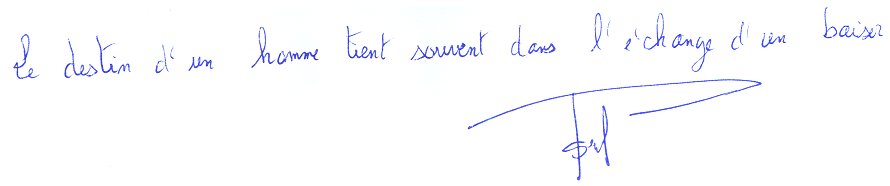 Le destin d'un homme tient souvent dans l'échange d'un baiser